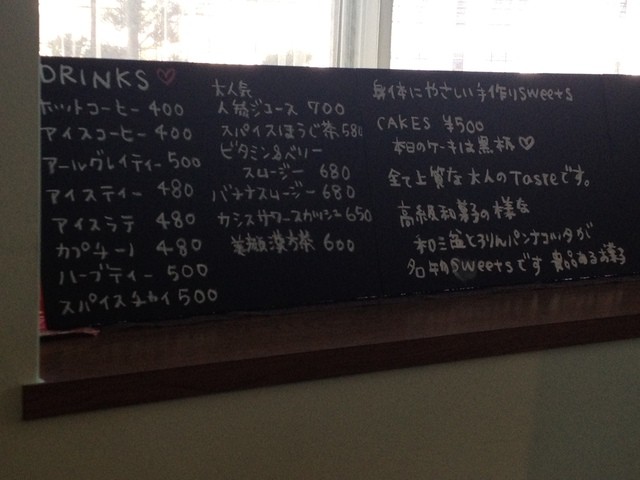 DRINKS♡
ホットコーヒー 400
アイスコーヒー 400
アールグレイティー 500
アイスティー 480
アイスラテ 480
カプチーノ 480
ハーブティー 500
スパイスチャイ 500
大人気
人参ジュース 700
スパイスほうじ茶 580
ビタミンBベリー
スムージー 680
バナナスムージー 680
カシスサワースカッシュ 650
美顔漢方茶 600
身体にやさしい手作りsweets
CAKES ¥500
本日のケーキは黒柿♡
全て上質な大人のTasteです。
高級和菓子の様な
和三盆とろりんパンナコッタが
sweetsです 気品あるお菓子